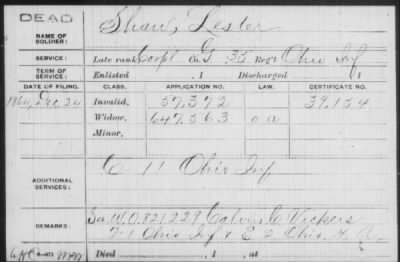 DEAD
NAME OF SOLDIER: Shaw, Lester
SERVICE: Late rank Corpl Co. G 35 Reg't Ohio Inf
TERM OF SERVICE: Enlisted , 1 Discharged , 1
DATE OF FILING. CLASS. APPLICATION NO. LAW. CERTIFICATE NO.
1864, Dec 24 Invalid, 57,372 39,154
Widow, 647,563 o a
Minor,
ADDITIONAL SERVICES: C 11 Ohio Inf
REMARKS: See W.O. 821,229 Calvin C Vickers
F 1 Ohio Inf & E 2 Ohio H. A.
Died , 1 , at